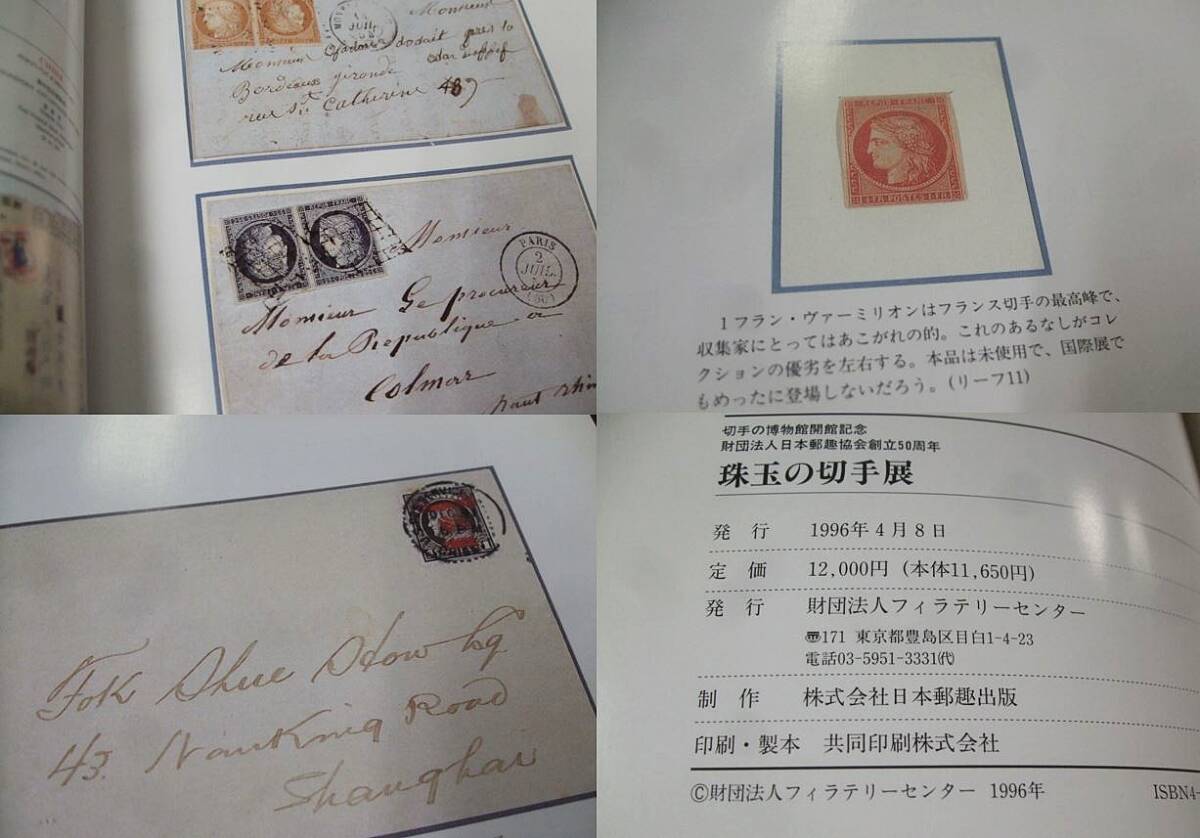 Monsieur
Bordeaux gironde
rue Ste Catherine
REPUB FRANC
Monsieur
PARIS
2
JUIL
(60)
Monsieur Le procureur
de la Republique a
Colmar
haut rhin
REPUB FRANC
1 FR POSTES 1 FR
1フラン・ヴァーミリオンはフランス切手の最高峰で、
収集家にとってはあこがれの的。これのあるなしがコレ
クションの優劣を左右する。本品は未使用で、国際展で
もめったに登場しないだろう。(リーフ11)
Fok Shue Stow Esq
43. Nanking Road
Shanghai
切手の博物館開館記念
財団法人日本郵趣協会創立50周年
珠玉の切手展
発行 1996年4月8日
定価 12,000円 (本体11,650円)
発行 財団法人フィラテリーセンター
〠171 東京都豊島区目白1-4-23
電話03-5951-3331㈹
制作 株式会社日本郵趣出版
印刷・製本 共同印刷株式会社
©財団法人フィラテリーセンター 1996年 ISBN4-